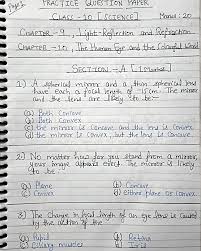 Page 1
PRACTICE QUESTION PAPER
CLASS - 10 [SCIENCE] Marks : 20
CHAPTER - 9, Light-Reflection and Refraction
CHAPTER - 10, The Human Eye and the Colourful World
SECTION - A [1 Marks]
1) A spherical mirror and a thin spherical lens
have each a focal length of 15 cm. The mirror
and the lens are likely to be:-
(a) Both Concave
(b) Both Convex
(c) the mirror is Concave and the lens is Convex
(d) the mirror is Convex, but the lens is Concave.
2) No matter how far you stand from a mirror,
your image appears erect. The mirror is likely
to be
(a) Plane (b) Concave
(c) Convex (d) either plane or Convex
3) The change in focal length of an eye lens is caused
by the action of the
(a) Pupil (b) Retina
(c) Ciliary muscles (d) Iris